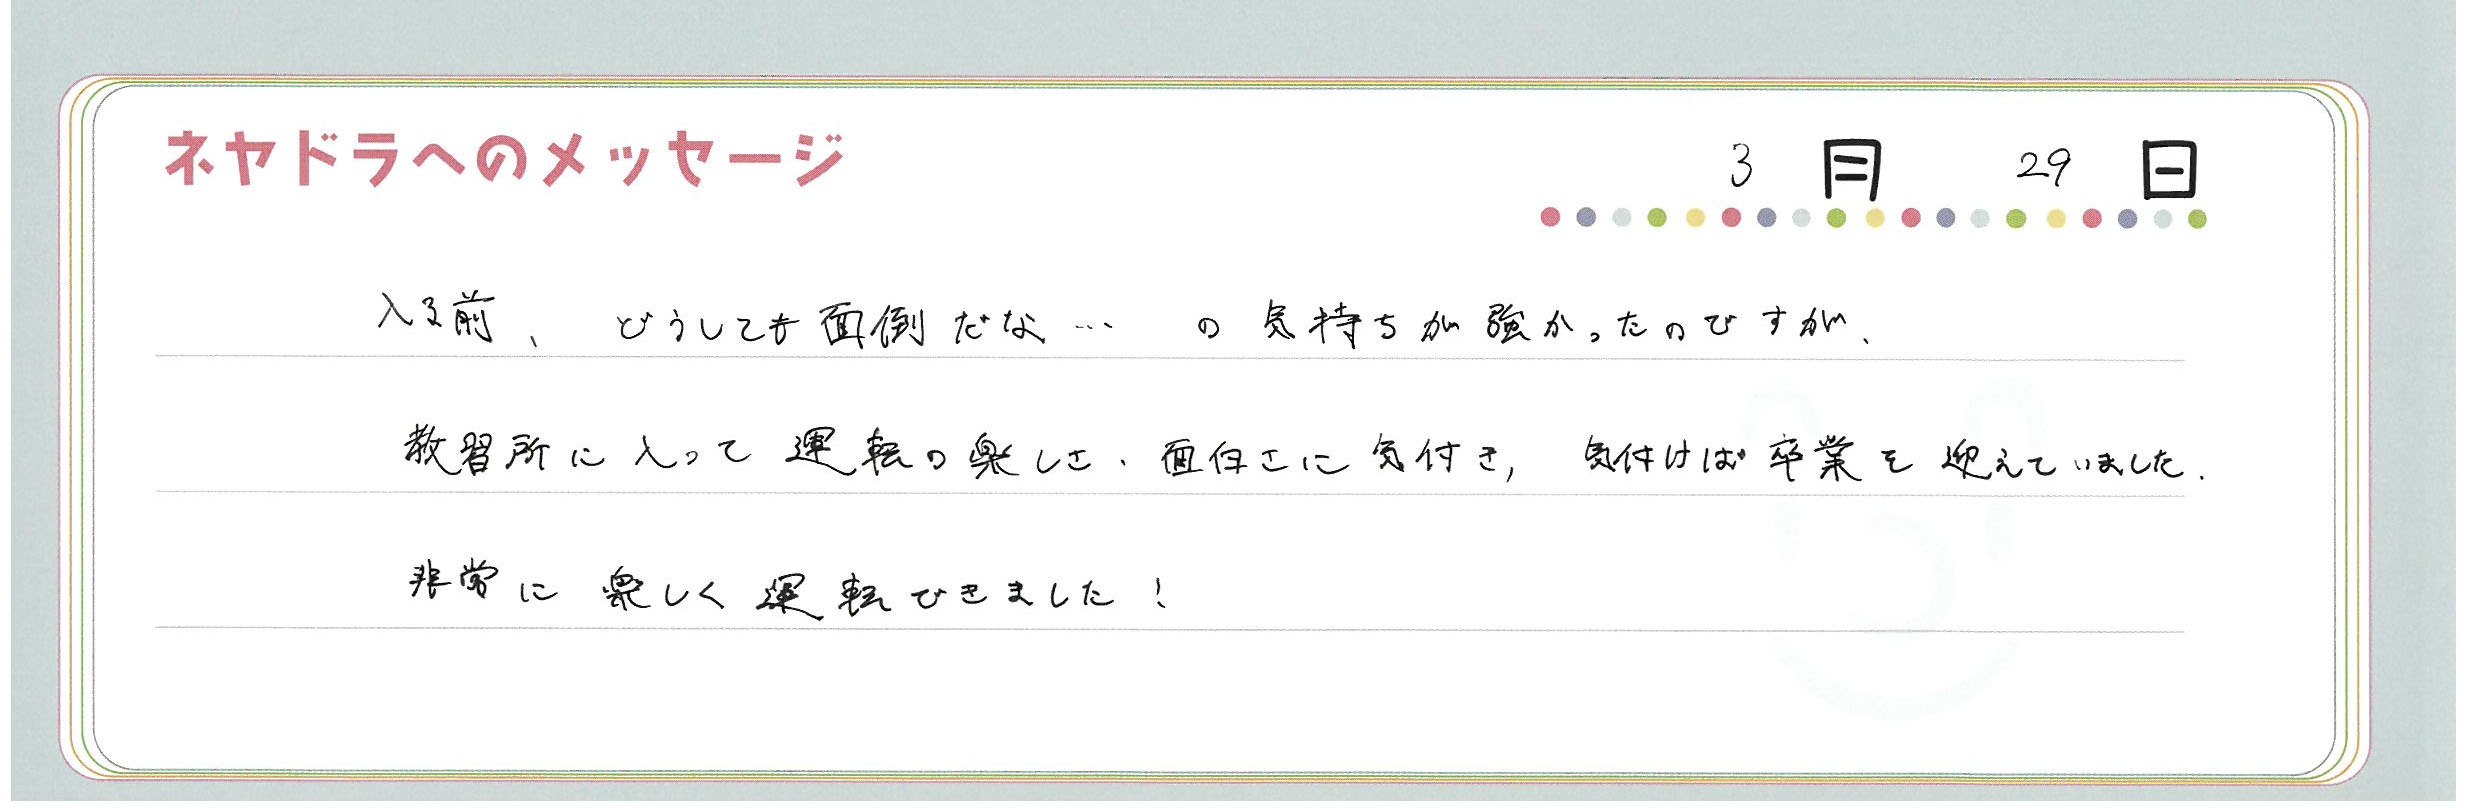 ネヤドラへのメッセージ
3月 29日
入る前、どうしても面倒だな… の気持ちが強かったのですが、
教習所に入って運転の楽しさ、面白さに気付き, 気付けば卒業を迎えていました.
非常に楽しく運転できました!